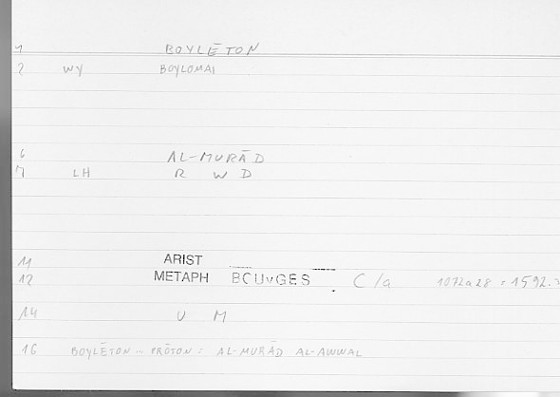 1 BOYLĒTON
2 WY BOYLOMAI
6 AL-MURĀD
7 LH R W D
11 ARIST
12 METAPH BOUYGES C/a 1072a28 = 1592.
14 U M
16 BOYLĒTON - PRŌTON = AL-MURĀD AL-AWWAL